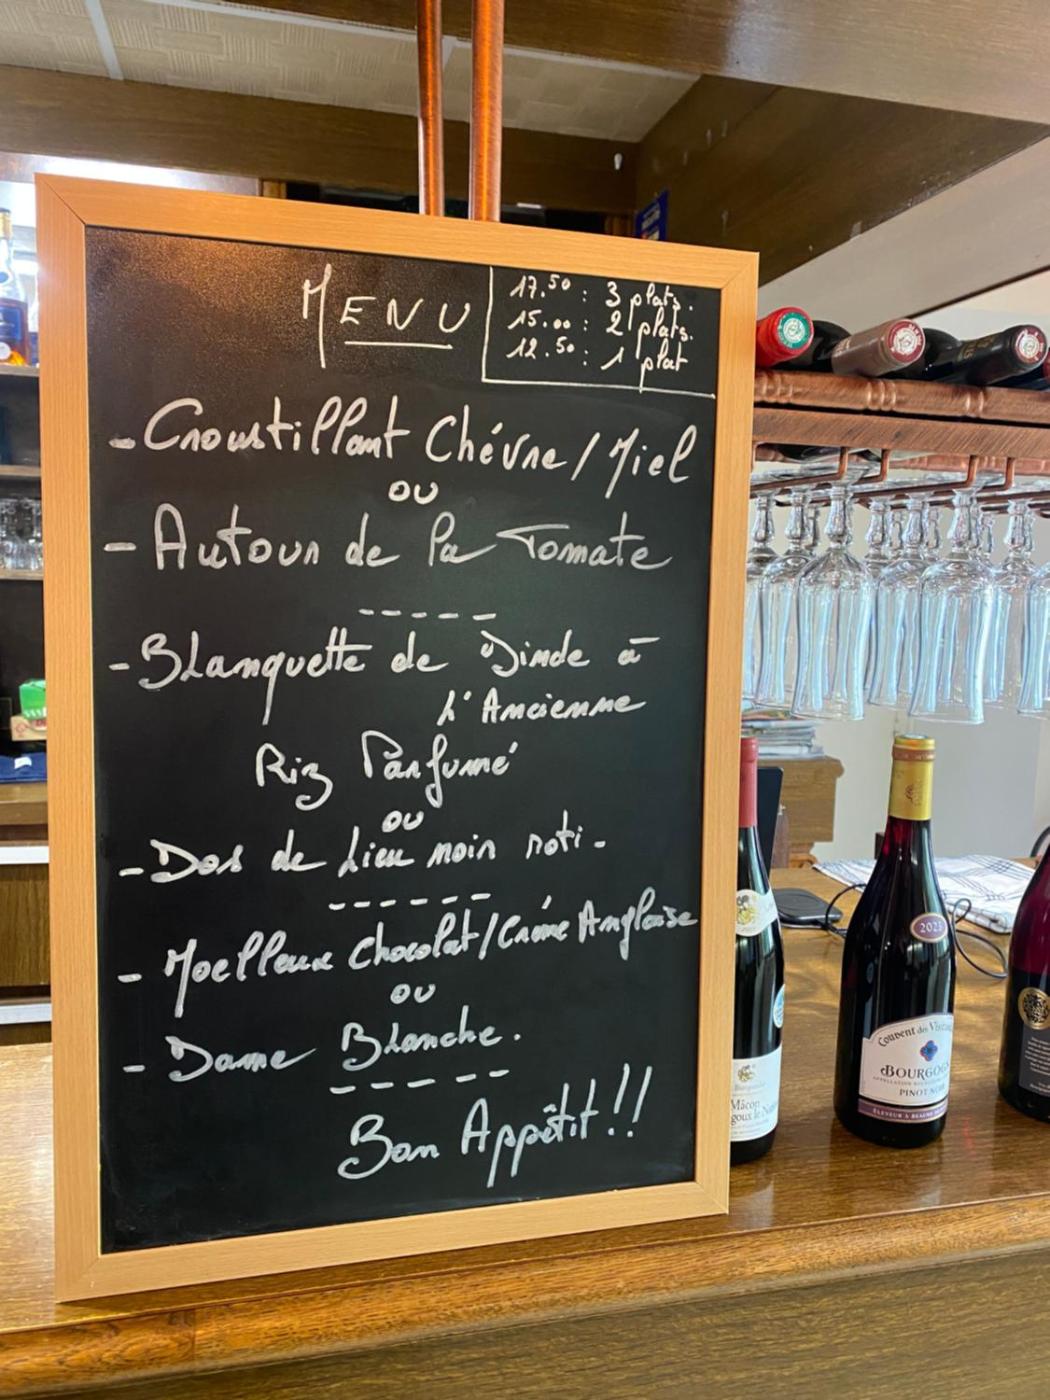 MENU
17.50 : 3 plats.
15.00 : 2 plats.
12.50 : 1 plat
- Croustillant Chévre / Miel
ou
- Autour de la Tomate
-----
- Blanquette de Dinde à
l'Ancienne
Riz Parfumé
ou
- Dos de Lieu noir roti -
------
- Moelleux Chocolat / Créme Anglaise
ou
- Dame Blanche.
-----
Bon Appêtit !!
2021
Couvent des
BOURGOGN
PINOT NOIR
Mâcon